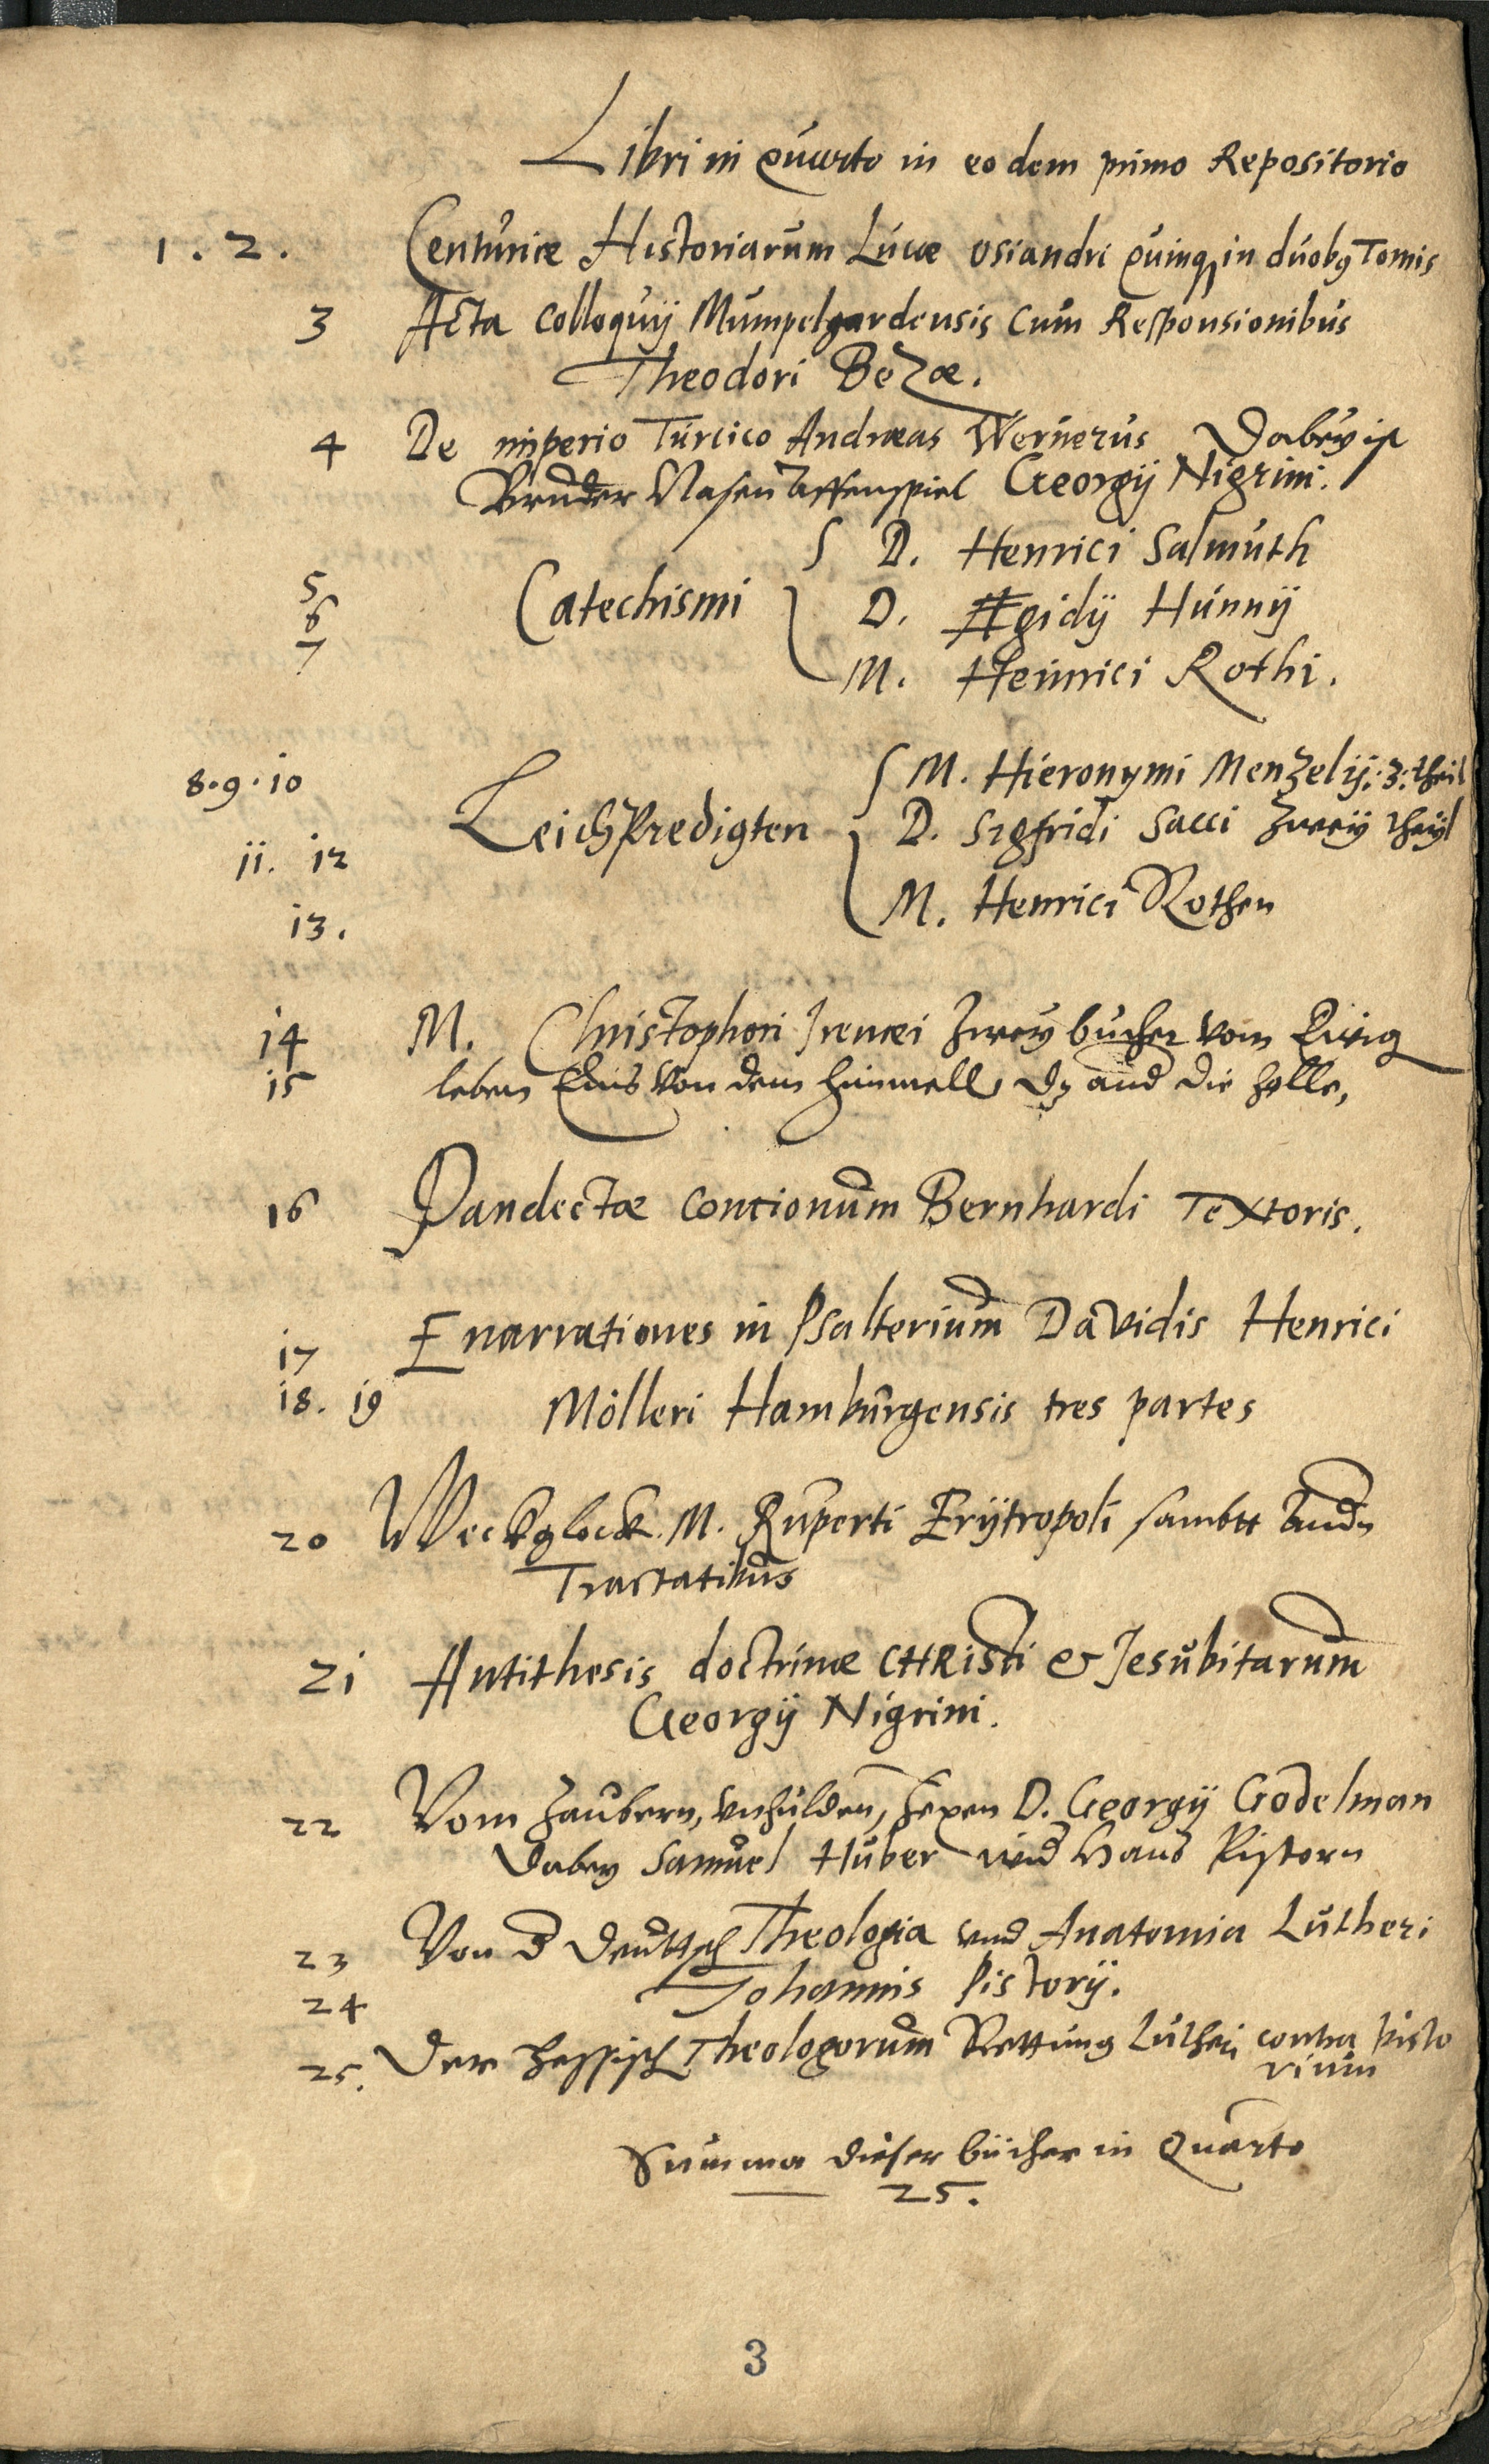 Libri in quarto in eodem primo Repositorio
1. 2. Centuriæ Historiarum Lucæ Osiandri quinq in duobq Tomis
3 Acta Colloquij Mumpelgardensis Cum Responsionibus
Theodori Bezæ.
4 De imperio Turcico Andræas Wernerus Dabey ist
Bruder Nasen Affenspiel Georgij Nigrini.
5 D. Henrici Salmuth
6 Catechismi D. Ægidij Hunnij
7 M. Heinrici Rothi.
8. 9. 10 M. Hieronymi Menzelij. 3. theil
11. 12 LeichPredigten D. Sigfridi Sacci Zwey theyl
13. M. Henrici Rothen
14 M. Christophori Irenæi Zwey bucher Vom Ewig
15 leben Eins Von dem himmell Dz and die helle,
16 Pandectæ concionum Bernhardi Textoris.
17 Enarrationes in Psalterium Davidis Henrici
18. 19 Mölleri Hamburgensis tres partes
20 Weckglock M. Ruperti Erytropoli sambtt And
Tractatibus
21 Antithesis doctrinæ CHRisti & Jesubitarum
Georgij Nigrini.
22 Vom Zaubern, Vnhulden, hexen D. Georgij Godelman
Dabey Samuel Huber und Hans Pistorn
23 Von d Deuttsch Theologia und Anatomia Lutheri
24 Johannis Pistorij.
25. Der hessisch Theologorum Rettung Lutheri contra Pisto
rium
Summa dieser bücher in Quarto
25.
3